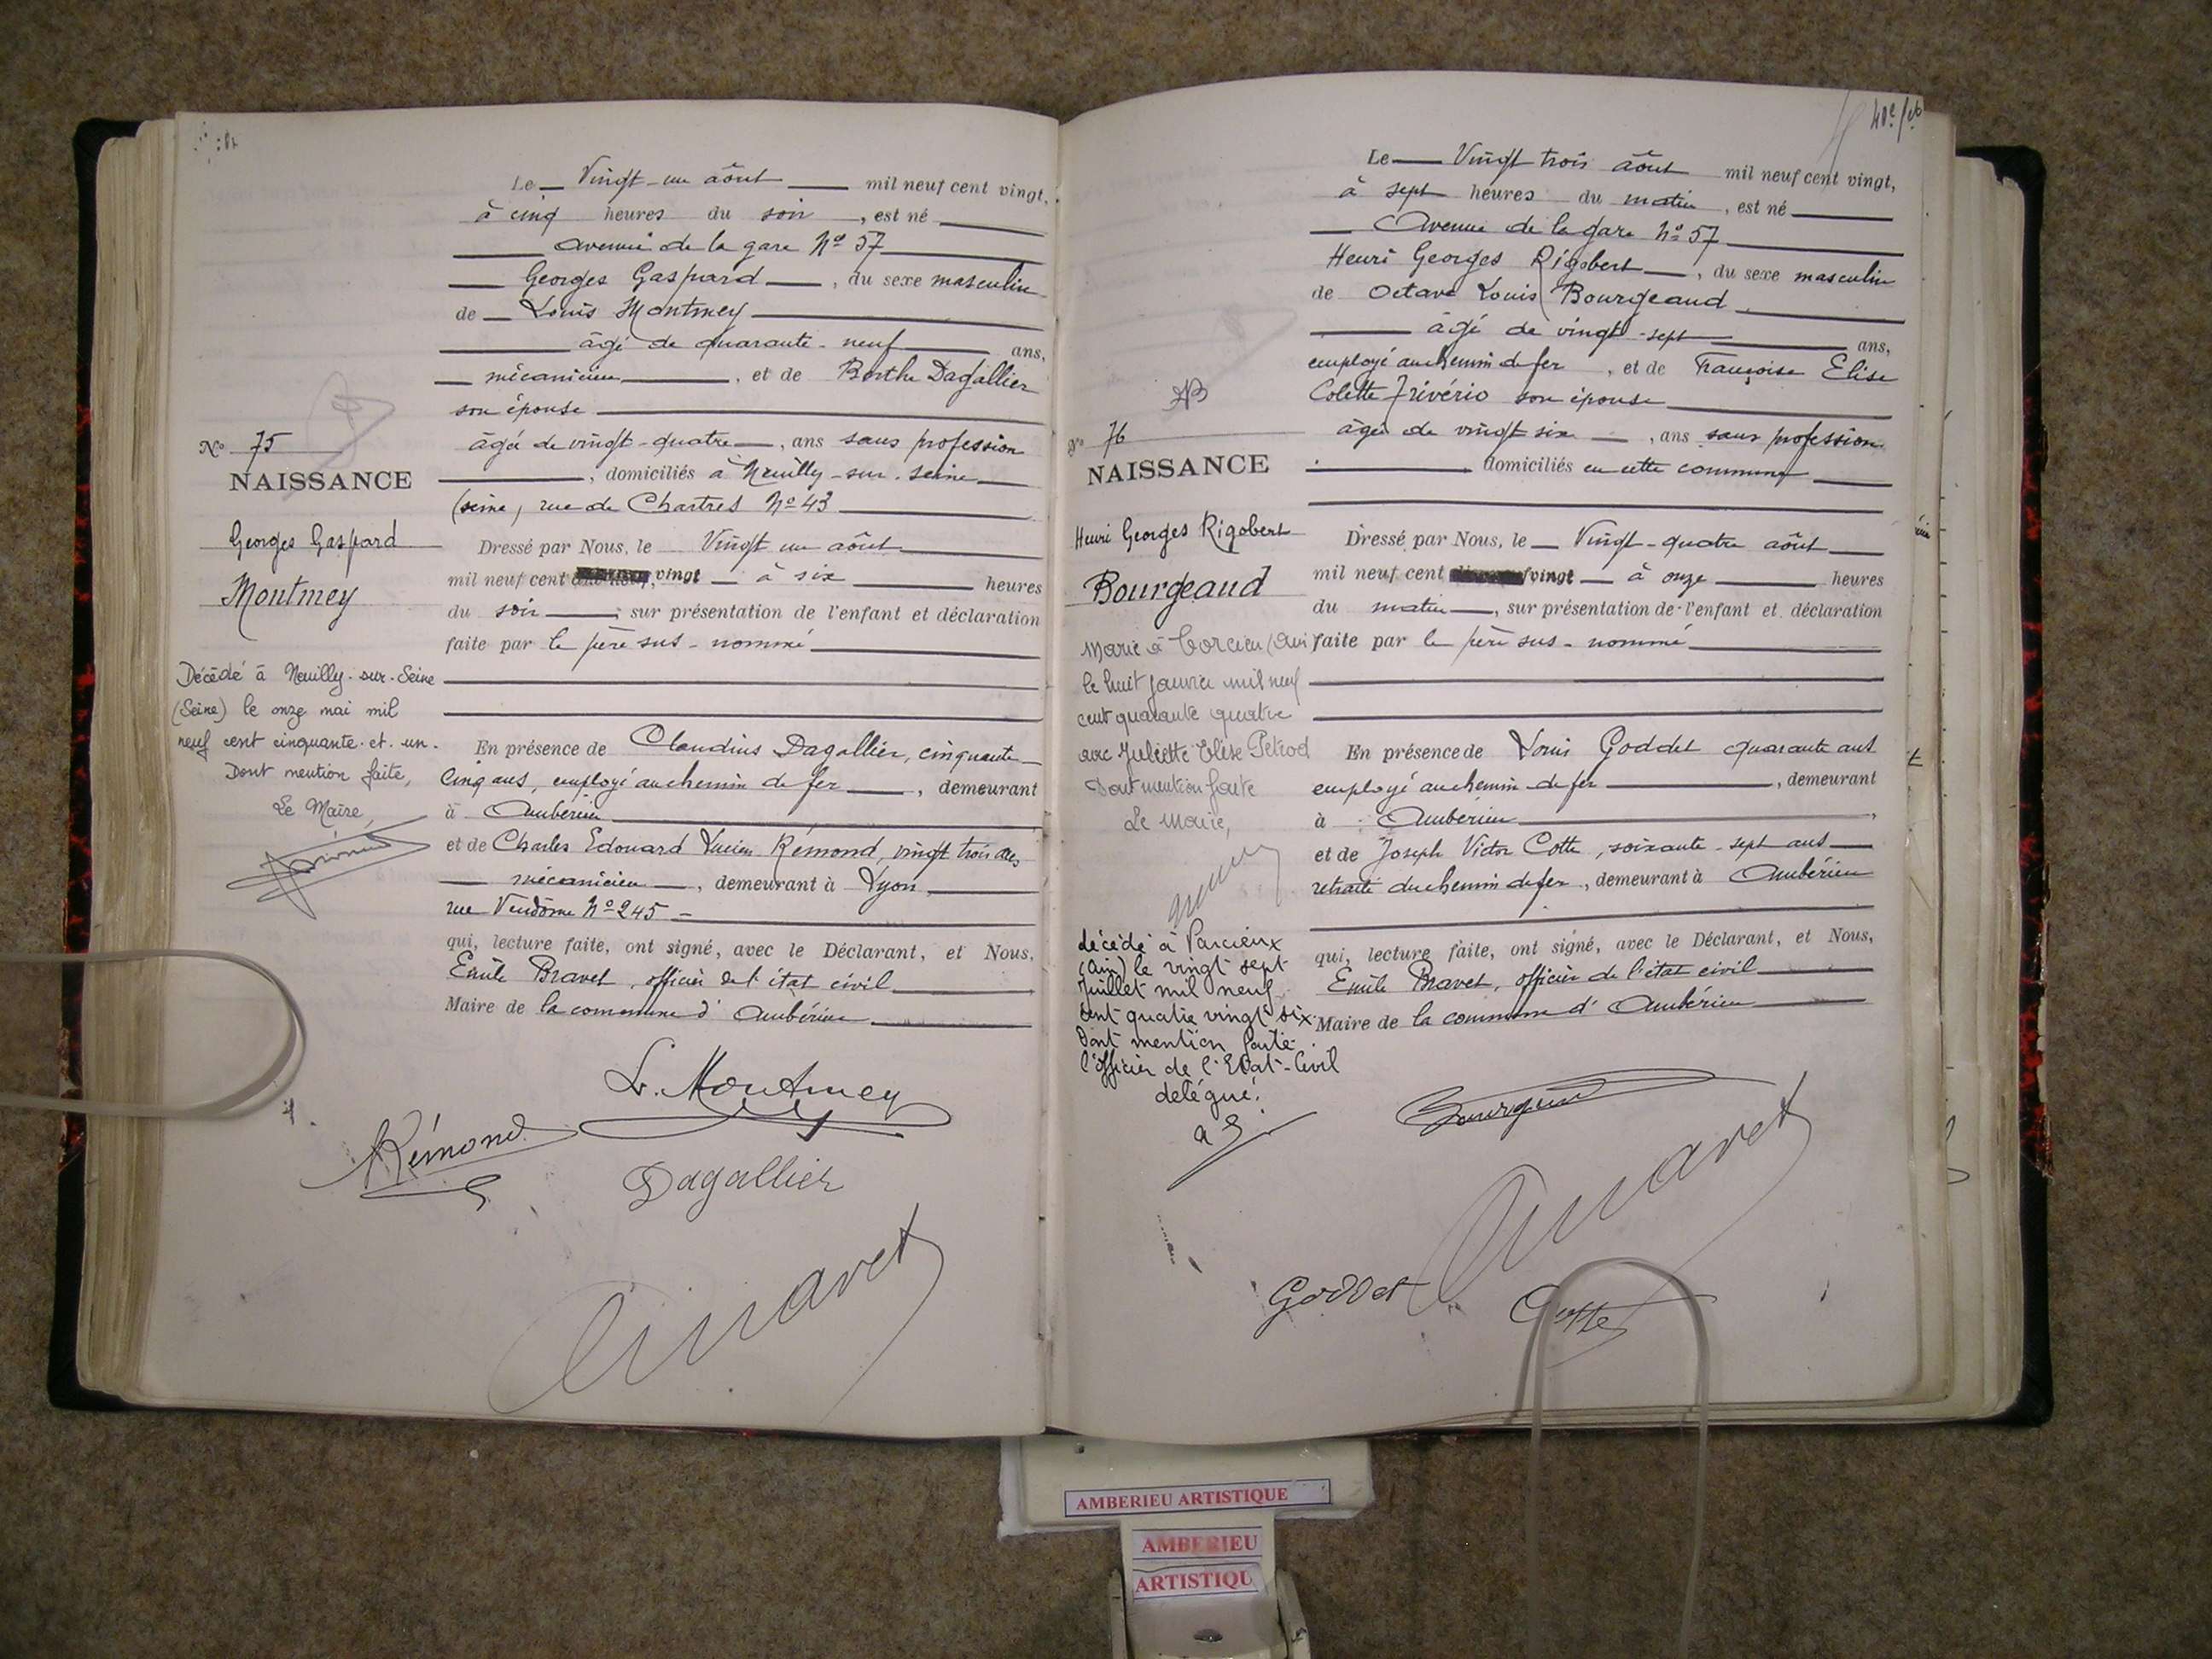 Le Vingt-un août mil neuf cent vingt,
à cinq heures du soir, est né
avenue de la gare Nº 57
Georges Gaspard, du sexe masculin
de Louis Montmey
âgé de quarante-neuf ans,
mécanicien, et de Berthe Dagallier
son épouse
âgée de vingt-quatre, ans sans profession
, domiciliés à Neuilly-sur-Seine
(Seine) rue de Chartres Nº 43
Dressé par Nous, le Vingt un août
mil neuf cent vingt à six heures
du soir, sur présentation de l'enfant et déclaration
faite par le père sus-nommé
En présence de Claudius Dagallier, cinquante
cinq ans, employé au chemin de fer, demeurant
à Ambérieu
et de Charles Edouard Lucien Rémond, vingt trois ans
mécanicien, demeurant à Lyon
rue Vendôme Nº 245
qui, lecture faite, ont signé, avec le Déclarant, et Nous,
Emile Bravet, officier de l'état civil
Maire de la commune d'Ambérieu
Nº 75
NAISSANCE
Georges Gaspard
Montmey
Décédé à Neuilly-sur-Seine
(Seine) le onze mai mil
neuf cent cinquante-et-un.
Dont mention faite,
Le Maire,
L. Montmey
Rémond
Dagallier
Le Vingt trois août mil neuf cent vingt,
à sept heures du matin, est né
Avenue de la gare Nº 57
Henri Georges Rigobert, du sexe masculin
de Octave Louis Bourgeaud
âgé de vingt-sept ans,
employé au chemin de fer, et de Françoise Elise
Colette Trivério son épouse
âgée de vingt six, ans sans profession
domiciliés en cette commune
Dressé par Nous, le Vingt-quatre août
mil neuf cent vingt à onze heures
du matin, sur présentation de l'enfant et déclaration
faite par le père sus-nommé
En présence de Louis Goddet quarante ans
employé au chemin de fer, demeurant
à Ambérieu
et de Joseph Victor Cotte, soixante-sept ans
retraité du chemin de fer, demeurant à Ambérieu
qui, lecture faite, ont signé, avec le Déclarant, et Nous,
Emile Bravet, officier de l'état civil
Maire de la commune d'Ambérieu
Nº 76
NAISSANCE
Henri Georges Rigobert
Bourgeaud
Marié à Torcieu (Ain)
le huit janvier mil neuf
cent quarante quatre
avec Juliette Elise Petrod
Dont mention faite
Le Maire,
décédé à Parcieux
(Ain) le vingt sept
Juillet mil neuf
cent quatre vingt six.
Dont mention faite
l'officier de l'Etat-Civil
délégué.
Bourgeaud
Goddet
Cotte
AMBERIEU ARTISTIQUE
AMBERIEU
ARTISTIQU